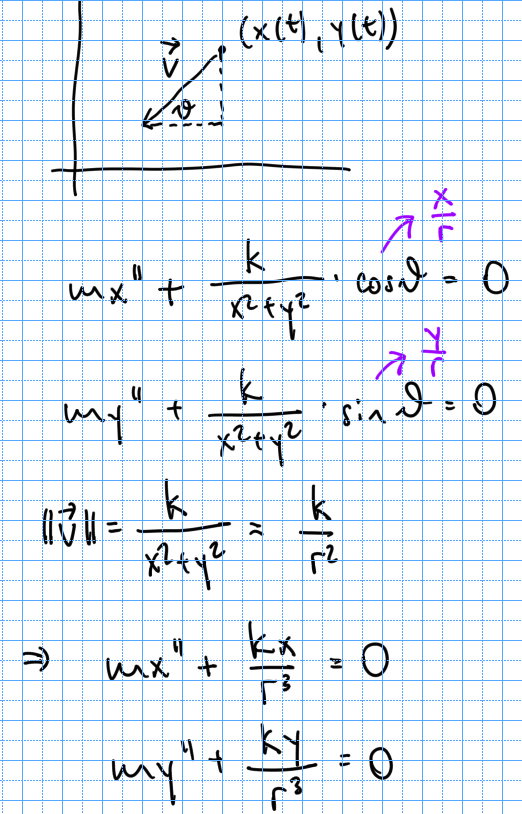 (x(t), y(t))
v⃗
ϑ
x/r
mx'' + k/(x²+y²) · cosϑ = 0
y/r
my'' + k/(x²+y²) · sinϑ = 0
||v⃗|| = k/(x²+y²) = k/r²
⇒ mx'' + kx/r³ = 0
my'' + ky/r³ = 0